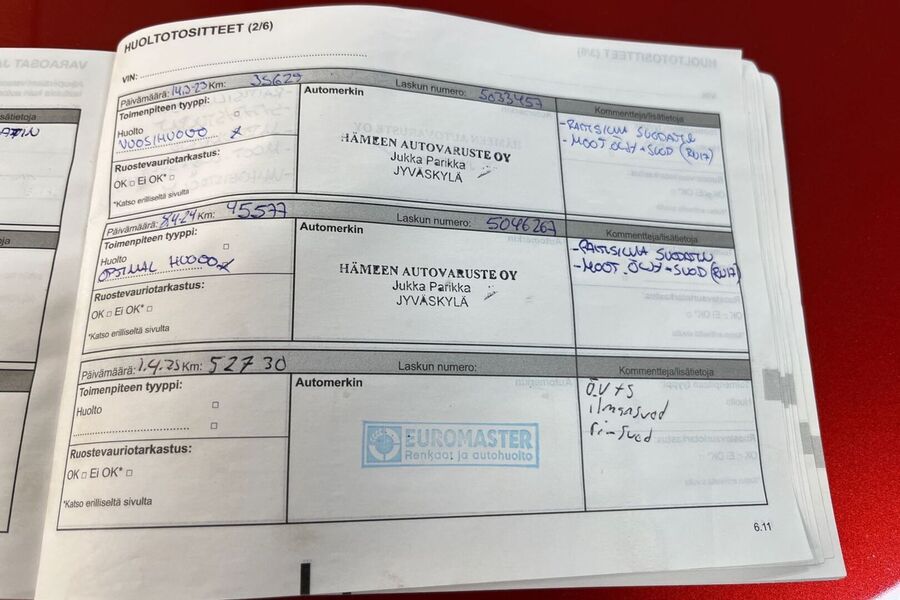 HUOLTOTOSITTEET (2/6)
VIN:
Päivämäärä: 14.3-23 Km: 35629
Laskun numero: 5033457
Toimenpiteen tyyppi:
Huolto
VUOSIHUOLTO x
Ruostevauriotarkastus:
OK □ Ei OK* □
*Katso erilliseltä sivulta
Automerkin
HÄMEEN AUTOVARUSTE OY
Jukka Parikka
JYVÄSKYLÄ
Kommentteja/lisätietoja
-RAITISILMA SUODATIN
-MOOT.ÖLJY+SUOD (RN17)
Päivämäärä: 8.4-24 Km: 45577
Laskun numero: 5046267
Toimenpiteen tyyppi:
Huolto
OPTIMAL HUOLTO x
Ruostevauriotarkastus:
OK □ Ei OK* □
*Katso erilliseltä sivulta
Automerkin
HÄMEEN AUTOVARUSTE OY
Jukka Parikka
JYVÄSKYLÄ
Kommentteja/lisätietoja
-RAITISILMA SUODATIN
-MOOT.ÖLJY+SUOD (RN17)
Päivämäärä: 1.4.25 Km: 52730
Laskun numero:
Toimenpiteen tyyppi:
Huolto
Ruostevauriotarkastus:
OK □ Ei OK* □
*Katso erilliseltä sivulta
Automerkin
EUROMASTER
Renkaat ja autohuolto
Kommentteja/lisätietoja
ÖV+S
ilmansuod
6.11